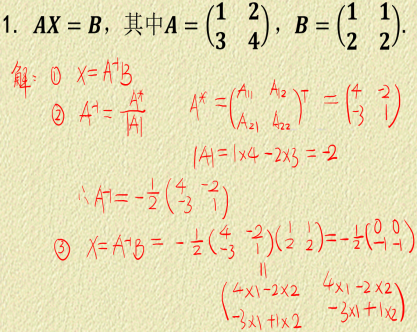 1. AX = B，其中A = (1 2
3 4)，B = (1 1
2 2).
解：① X = A⁻¹B
② A⁻¹ = A*/|A| A* = (A₁₁ A₁₂
A₂₁ A₂₂)ᵀ = (4 -2
-3 1)
|A| = 1×4 - 2×3 = -2
∴ A⁻¹ = -1/2 (4 -2
-3 1)
③ X = A⁻¹B = -1/2 (4 -2
-3 1)(1 1
2 2) = -1/2 (0 0
-1 -1)
||
(4×1-2×2 4×1-2×2
-3×1+1×2 -3×1+1×2)